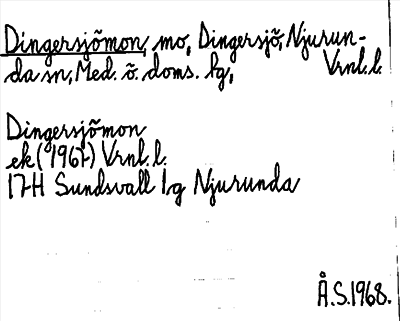 Dingersjömon, mo, Dingersjö, Njurun-
da sn, Med. ö. doms. lg, Vrnl. l.
Dingersjömon
ek (1967) Vrnl. l.
17H Sundsvall lg Njurunda
Å.S. 1968.